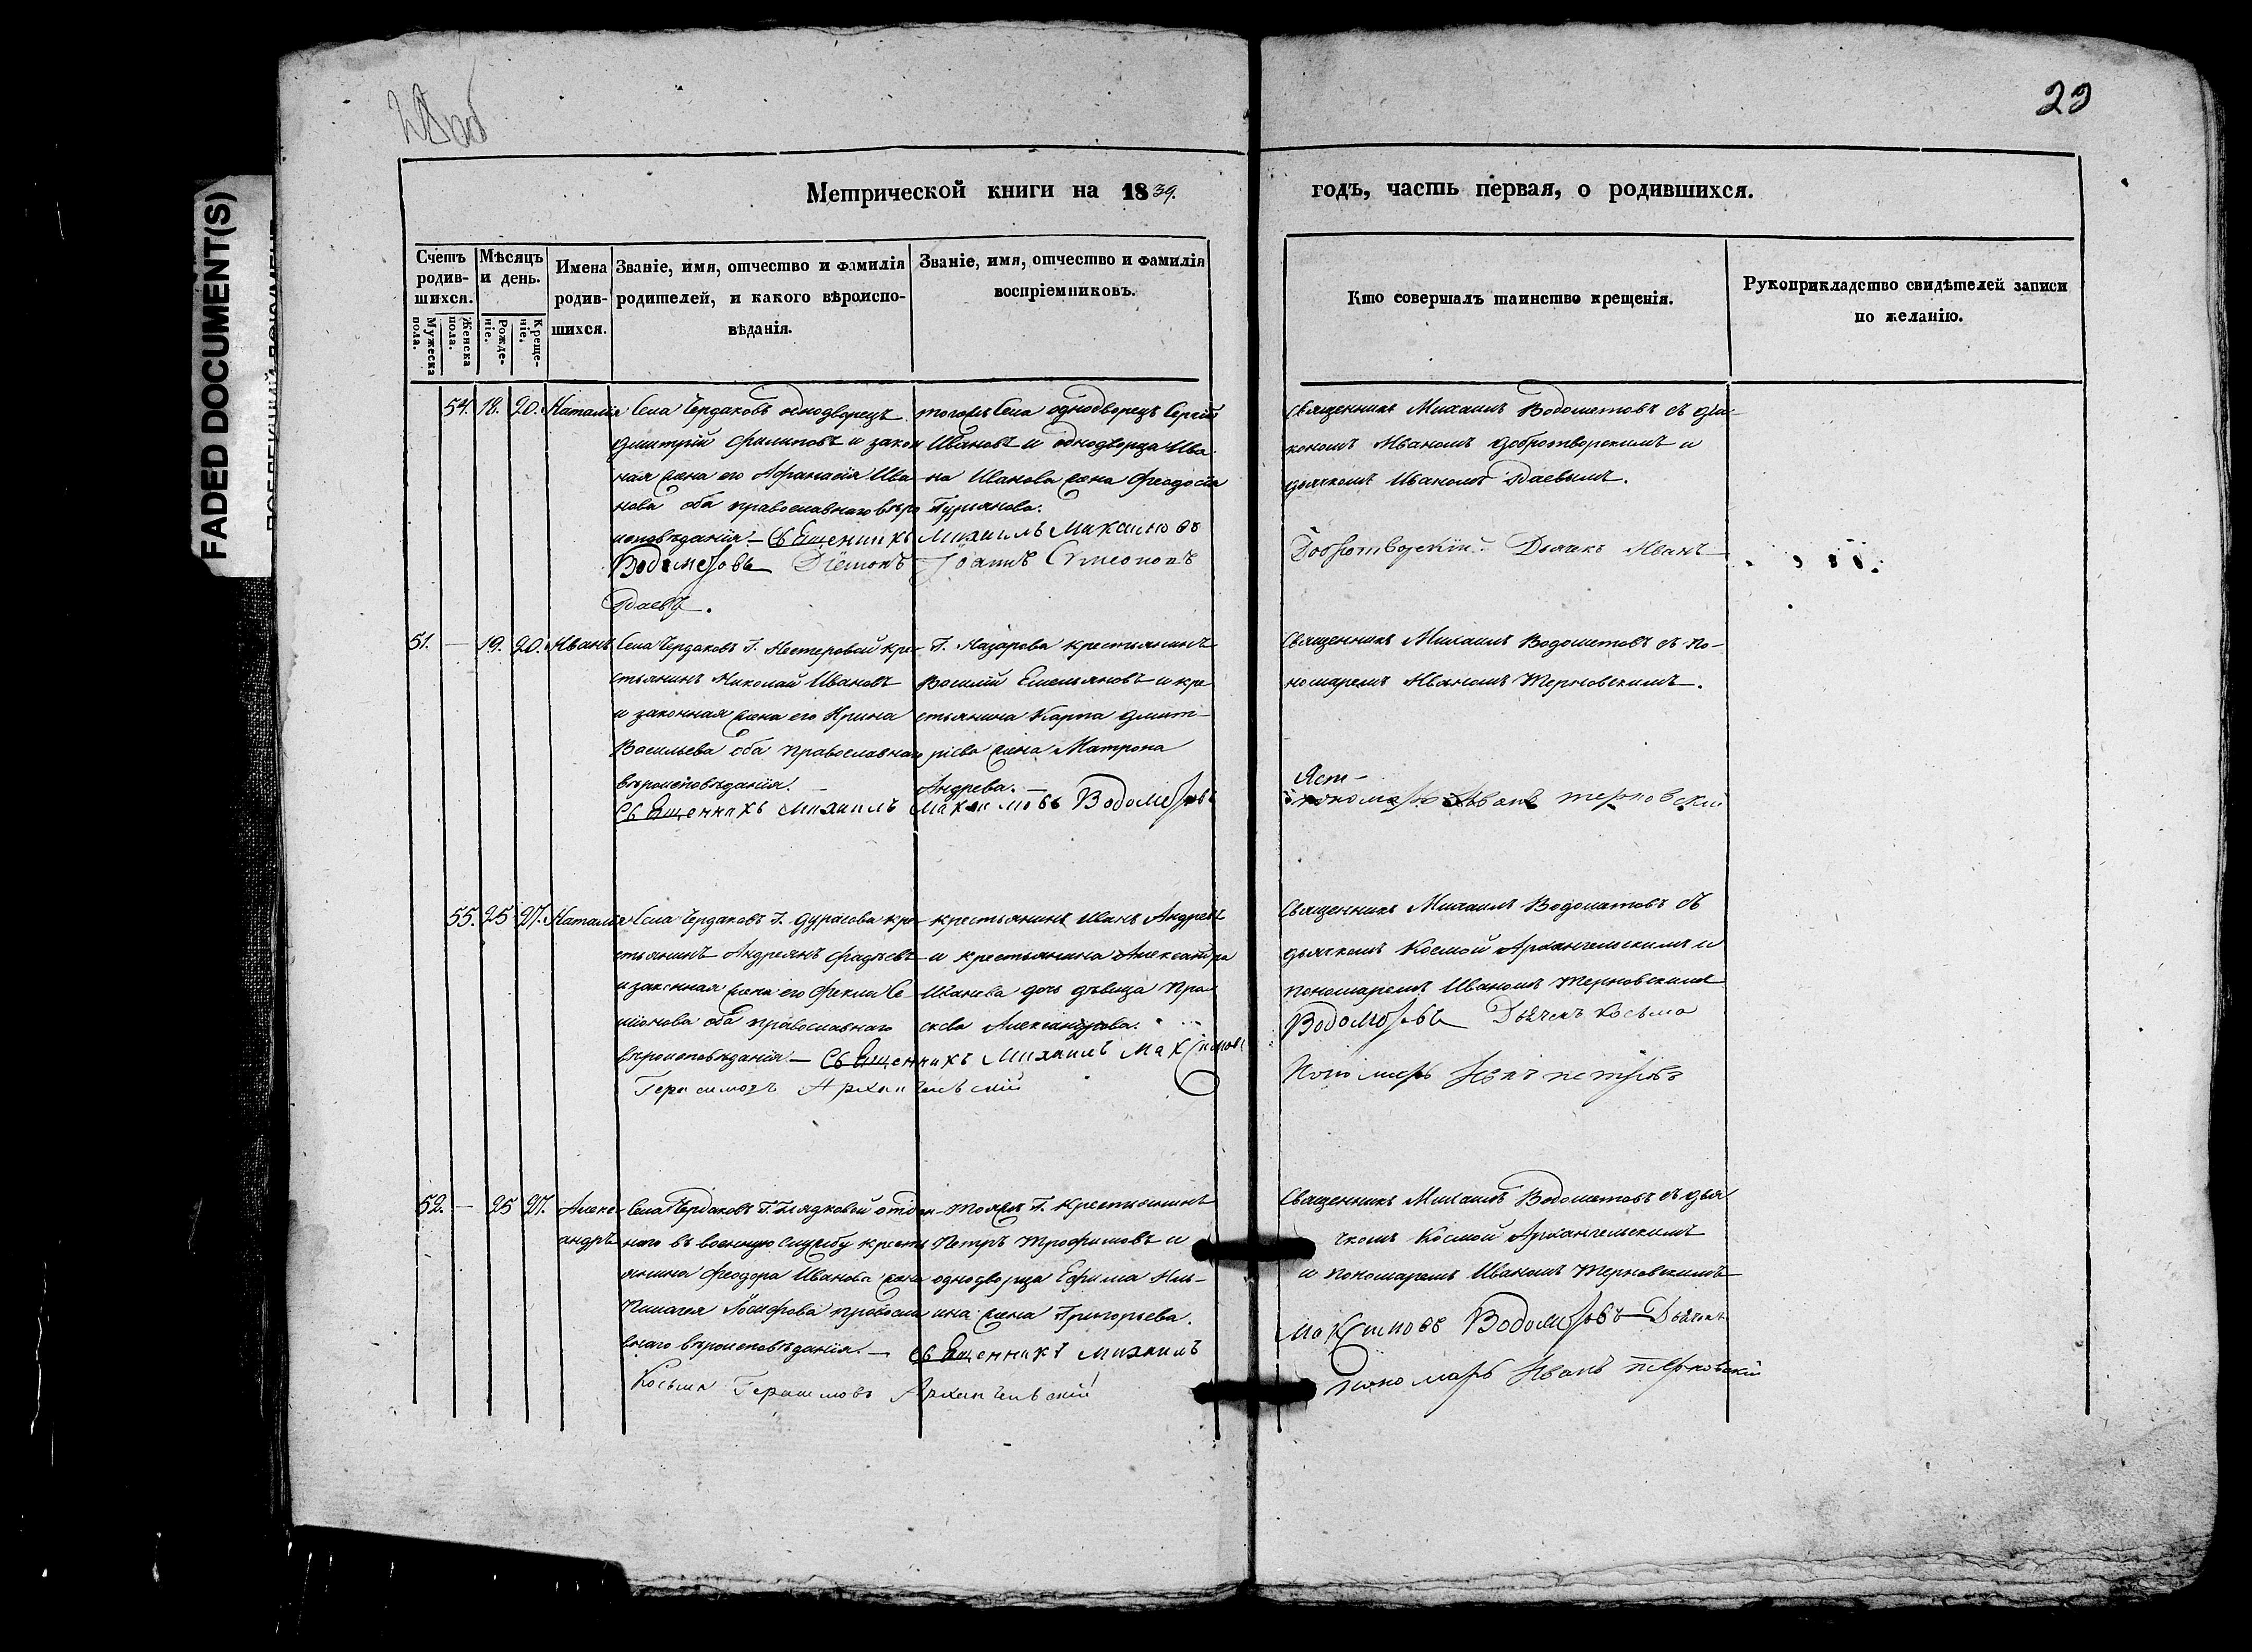 FADED DOCUMENT(S)
23
Метрической книги на 1839. годъ, часть первая, о родившихся.
Счетъ родив-шихся.
Мужеска пола.
Женска пола.
Мѣсяцъ и день.
Рожде-ніе.
Креще-ніе.
Имена родив-шихся.
Званіе, имя, отчество и фамилія родителей, и какого вѣроиспо-вѣданія.
Званіе, имя, отчество и фамилія воспріемниковъ.
Кто совершалъ таинство крещенія.
Рукоприкладство свидѣтелей записи по желанію.
54. 18. 20. Наталія
Села Чердаковъ однодворецъ
Дмитрій Филиповъ и закон
ная жена его Афанасія Ива
нова оба православнаго вѣро
исповѣданія. — Священникъ Михаилъ Максимовъ
Водометовъ Діаконъ Іоаннъ Симеоновъ
того жъ Села однодворецъ Сергій
Ивановъ и однодворца Ива
на Иванова жена Феодосія
Священникъ Михаилъ Водометовъ съ діа-
кономъ Иваномъ Добротворскимъ и
дьячкомъ Иваномъ
Добротворскій. Дьячекъ Иванъ
51. — 19. 20. Иванъ
Села Чердаковъ Г. Нестеровой кре-
стьянинъ Николай Ивановъ
и законная жена его Ирина
Васильева оба православнаго
вѣроисповѣданія. —
Священникъ Михаилъ Максимовъ Водометовъ
Г. Назарова крестьянинъ
Василій Емельяновъ и кре
стьянина Карпа Дмит-
ріева жена Матрона
Андрева. —
Священникъ Михаилъ Водометовъ съ по-
номаремъ Иваномъ Терновскимъ.
пономарь Иванъ терновскій
55. 25 27. Наталія
Села Чердаковъ Г. Дурасова кре-
стьянинъ Андреянъ Фадѣевъ
и законная жена его Фекла Се-
міонова оба православнаго
вѣроисповѣданія. — Священникъ Михаилъ Максимовъ
Герасимовъ Архангельскій
крестьянинъ Иванъ Андревъ
и крестьянина Александра
Иванова дочь дѣвица Пра
скева Александрова.
Священникъ Михаилъ Водометовъ съ
дьячкомъ Космой Архангельскимъ и
пономаремъ Иваномъ Терновскимъ
Водометовъ Дьячекъ Косьма
Пономарь
52. — 25 27. Алекс-
андръ
Села Чердаковъ Г. отдан-
наго въ военную службу кресть
янина Феодора Иванова жена
Пелагея Іосифова правосла
внаго вѣроисповѣданія. — Священникъ Михаилъ
Косьма Герасимовъ Архангельскій
тояжъ Г. крестьянинъ
Петръ Трофимовъ и
однодворца Ефима Иль-
ина жена Григорьева.
Священникъ Михаилъ Водометовъ съ дья
чкомъ Космой Архангельскимъ
и пономаремъ Иваномъ Терновскимъ
Максимовъ Водометовъ Дьячекъ
пономарь Иванъ терновскій